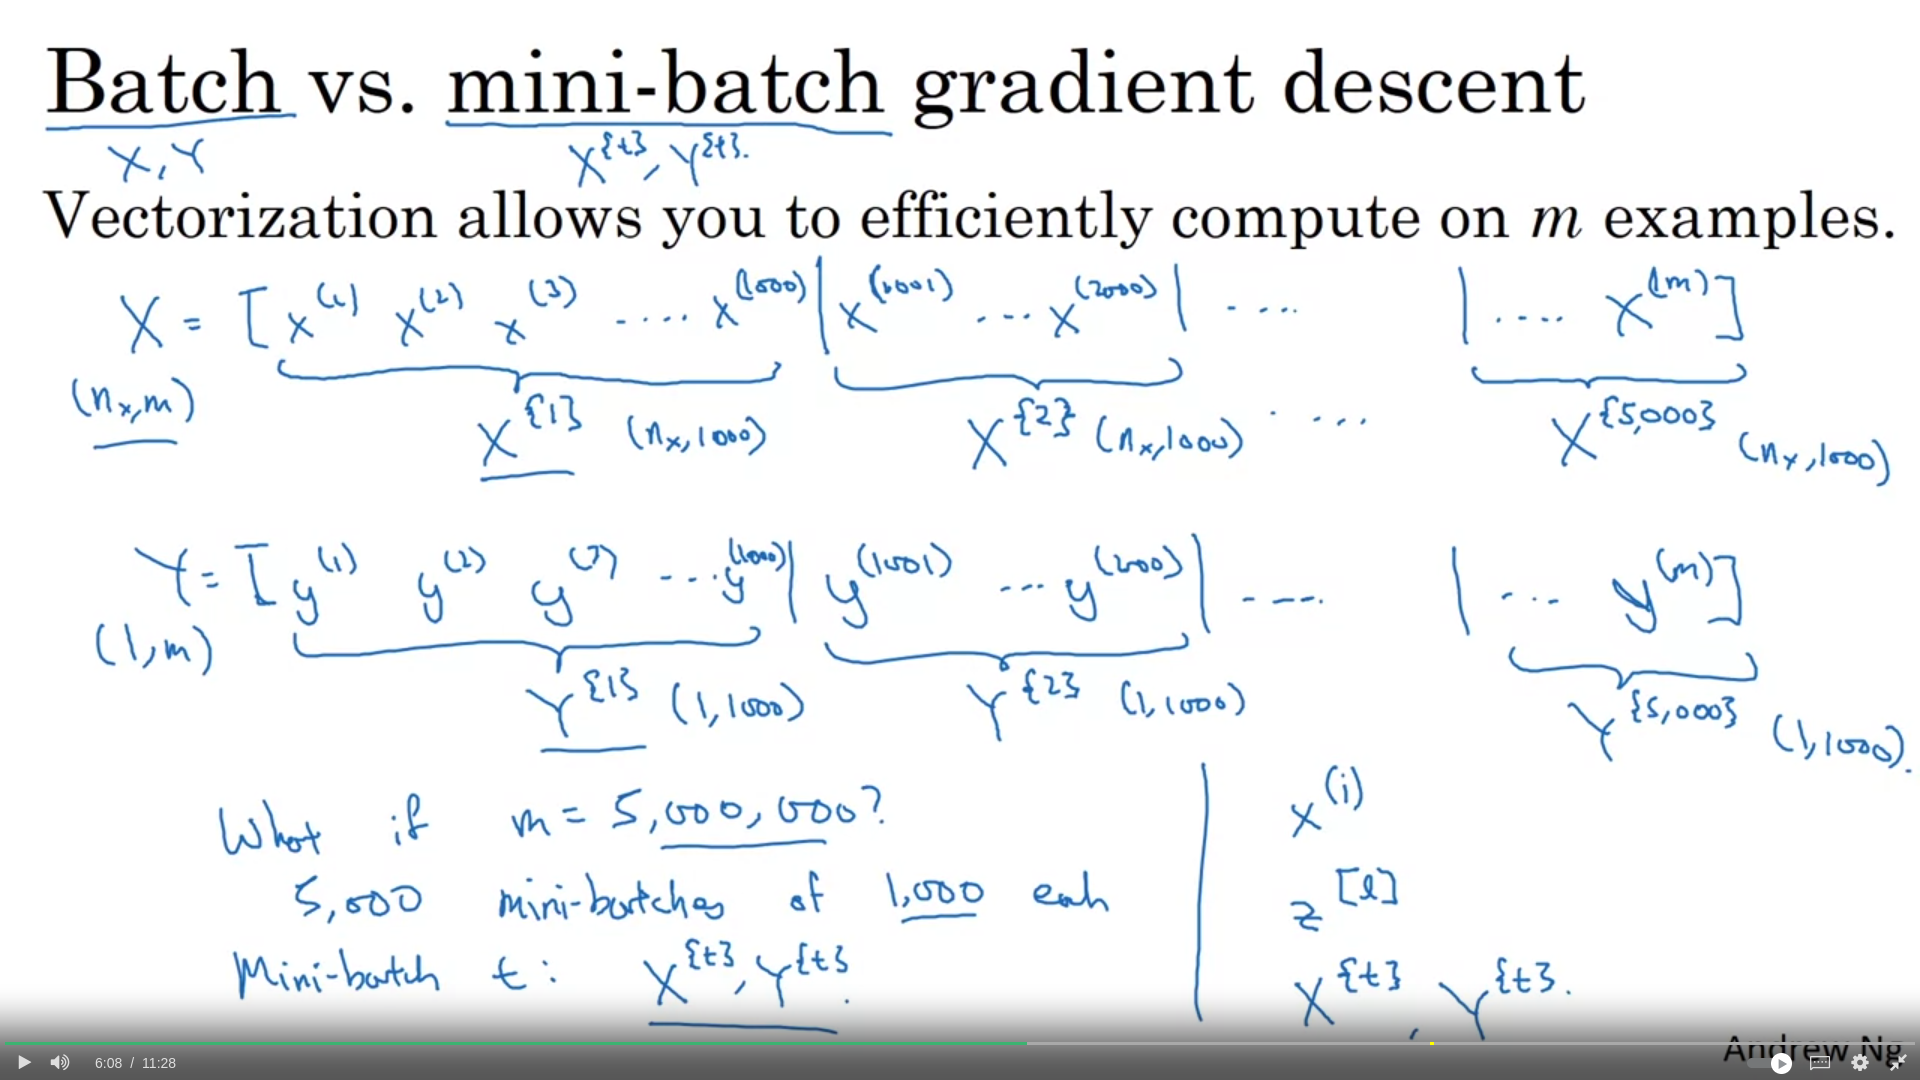 Batch vs. mini-batch gradient descent
X, Y X^{t}, Y^{t}.
Vectorization allows you to efficiently compute on m examples.
X = [x^(1) x^(2) x^(3) .... x^(1000) | x^(1001) ... x^(2000) | .... | .... x^(m)]
(n_x, m) X^{1} (n_x, 1000) X^{2} (n_x, 1000) .... X^{5,000} (n_x, 1000)
Y = [y^(1) y^(2) y^(3) ... y^(1000) | y^(1001) ... y^(2000) | ---. | ... y^(m)]
(1, m) Y^{1} (1, 1000) Y^{2} (1, 1000) Y^{5,000} (1, 1000).
What if m = 5,000,000?
5,000 mini-batches of 1,000 each
Mini-batch t: X^{t}, Y^{t}.
x^(i)
z^[l]
X^{t}, Y^{t}.
Andrew Ng
6:08 / 11:28